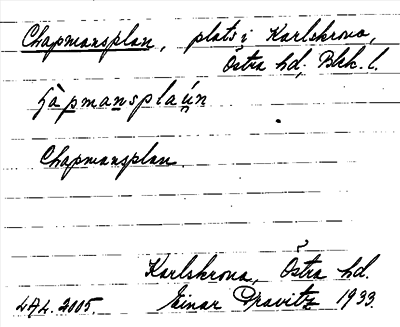 Chapmansplan, plats i Karlskrona,
Östra hd, Blek. l.
Chapmansplan.
Karlskrona, Östra hd.
Einar Pravitz 1933.